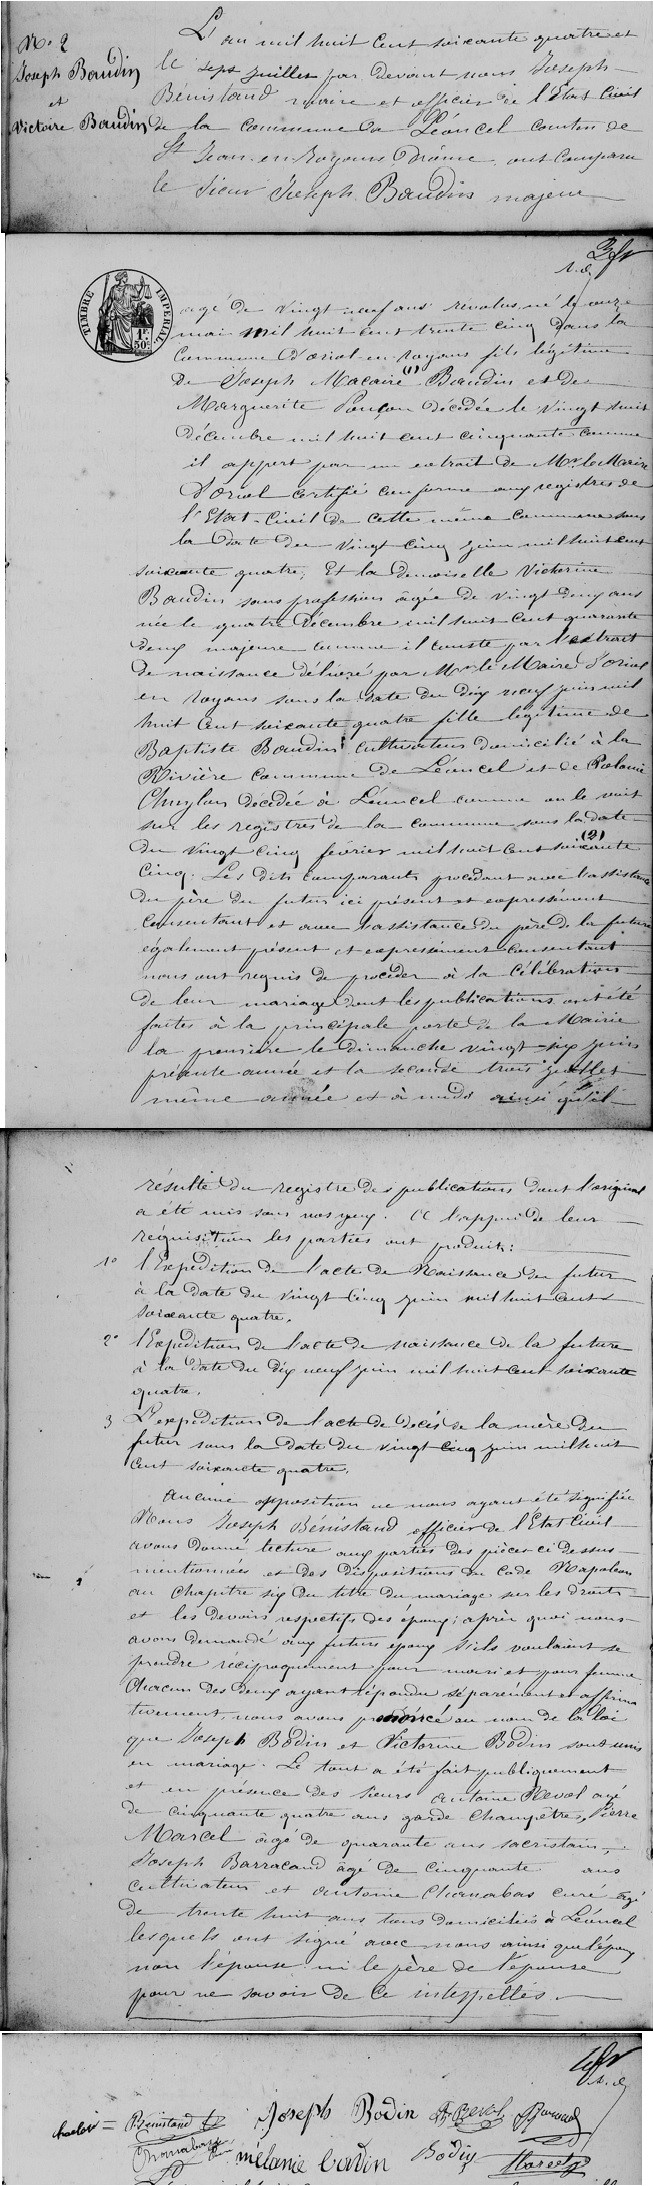 N° 2
Joseph Baudin
et
Victoire Baudin
L'an mil huit cent soixante quatre et
le sept juillet par devant nous Joseph
Bénistand maire et officier de l'Etat Civil
de la commune de Léoncel canton de
St Jean-en-Royans Drôme, ont comparu
le sieur Joseph Baudin majeur
TIMBRE IMPERIAL
1 F. 50 C.
agé de vingt neuf ans révolus né le onze
mai mil huit cent trente cinq dans la
Commune d'oriol en-royans fils légitime
de Joseph Macaire (1) Baudin et de
Marguerite Ponçon décédée le vingt huit
décembre mil huit cent cinquante comme
il appert par un extrait de Mr le Maire
d'oriol certifié conforme aux registres de
l'Etat-Civil de cette même commune sous
la date du vingt cinq juin mil huit cent
soixante quatre; Et la demoiselle Victorine
Baudin sans profession âgée de vingt deux ans
née le quatre Décembre mil huit cent quarante
deux majeure comme il conste par l'extrait
de naissance délivré par Mr le Maire d'oriol
en royans sous la date du dix neuf juin mil
huit cent soixante quatre fille légitime de
Baptiste Baudin cultivateur domicilié à la
Rivière commune de Léoncel et de
décédée à Léoncel comme on le voit
sur les registres de la commune sous la date
du vingt cinq février mil huit cent soixante (2)
cinq. Les dits comparants procédant avec l'assistance
du père du futur ici présent et expressément
consentant et avec l'assistance du père de la future
également présent et expressément consentant
nous ont requis de procéder à la célébration
de leur mariage dont les publications ont été
faites à la principale porte de la Mairie
la première le dimanche vingt-six juin
présente année et la seconde trois juillet
même année et à midi ainsi qu'il
résulte du registre des publications dont l'original
a été mis sous nos yeux. A l'appui de leur
réquisition les parties ont produit:
1° l'Expédition de l'acte de Naissance du futur
à la date du vingt cinq juin mil huit cent
soixante quatre.
2° l'Expédition de l'acte de naissance de la future
à la date du dix neuf juin mil huit cent soixante
quatre.
3 L'expédition de l'acte de décès de la mère du
futur sous la date du vingt cinq juin mil huit
cent soixante quatre.
Aucune opposition ne nous ayant été signifiée
Nous Joseph Bénistand officier de l'Etat Civil
avons donné lecture aux parties des pièces ci dessus
mentionnées et des dispositions du Code Napoléon
au chapitre six du titre du mariage sur les droits
et les devoirs respectifs des époux; après quoi nous
avons demandé aux futurs époux s'ils voulaient se
prendre réciproquement pour mari et pour femme
Chacun des deux ayant répondu séparément et affirma
tivement, nous avons prononcé au nom de la loi
que Joseph Bodin et Victorine Bodin sont unis
en mariage. Le tout a été fait publiquement
et en présence des sieurs Antoine Revol agé
de cinquante quatre ans garde champêtre, Pierre
Marcel âgé de quarante ans sacristain,
Joseph Barracand âgé de cinquante ans
cultivateur et Antoine Chanabas curé âgé
de trente huit ans tous domiciliés à Léoncel
lesquels ont signé avec nous ainsi que l'époux
non l'épouse ni le père de l'épouse
pour ne savoir de ce interpellés.
Bénistand Joseph Bodin Revol
Chanabas mélanie bodin Bodin Marcel